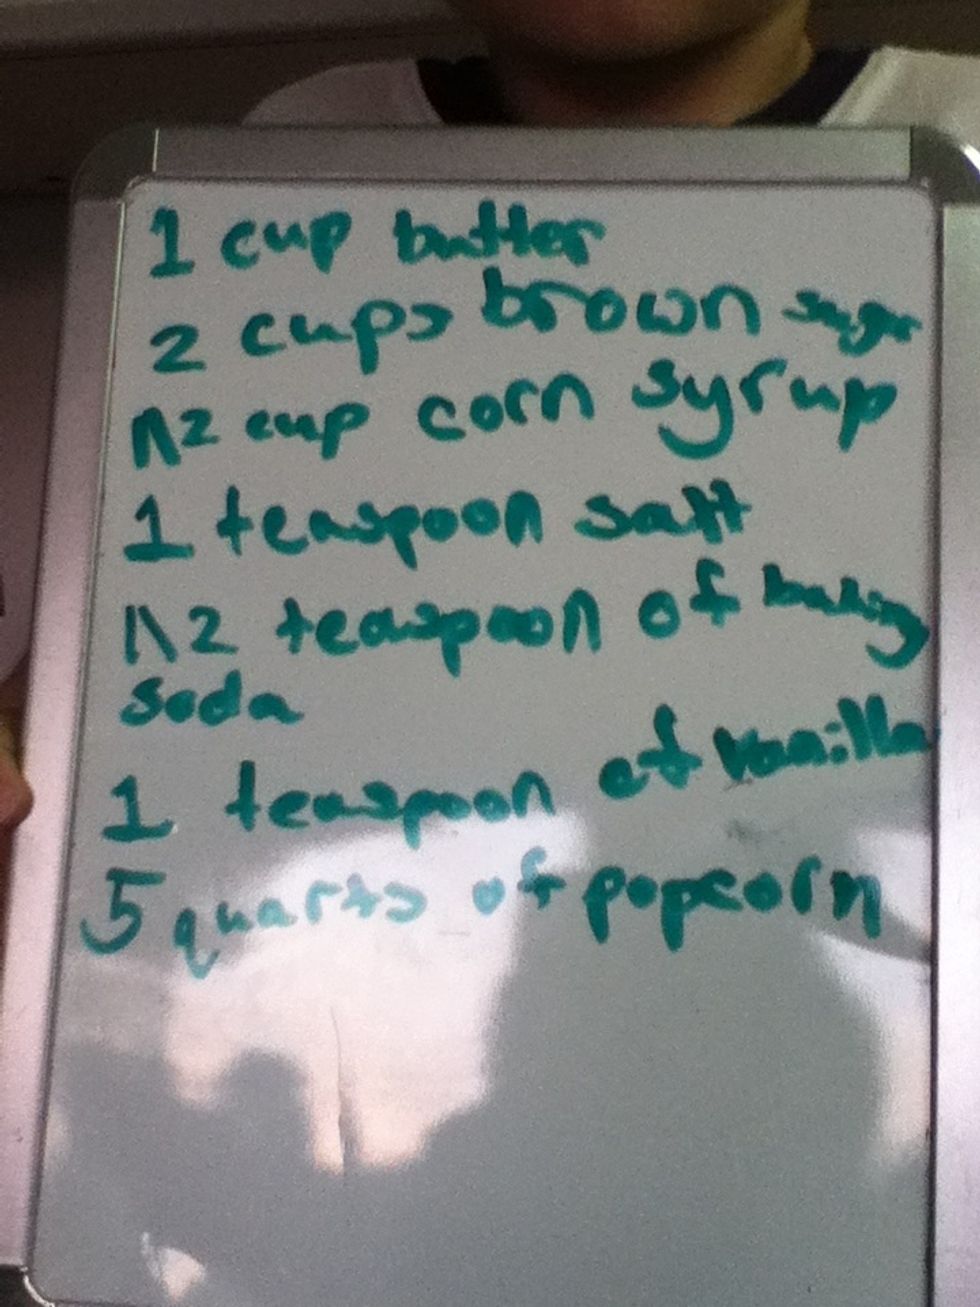 1 cup butter
2 cups brown sugar
1\2 cup corn syrup
1 teaspoon salt
1\2 teaspoon of baking
soda
1 teaspoon of vanilla
5 quarts of popcorn